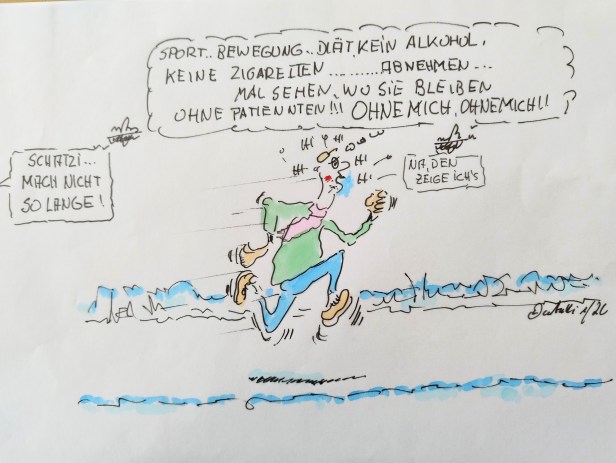 SPORT.. BEWEGUNG.. DIÄT, KEIN ALKOHOL,
KEINE ZIGARETTEN ... ...... ABNEHMEN...
MAL SEHEN, WO SIE BLEIBEN
OHNE PATIENNTEN!!! OHNE MICH, OHNE MICH!!
SCHATZI...
MACH NICHT
SO LANGE!
HI HI
HI HI
HI HI
NA, DEN
ZEIGE ICH'S